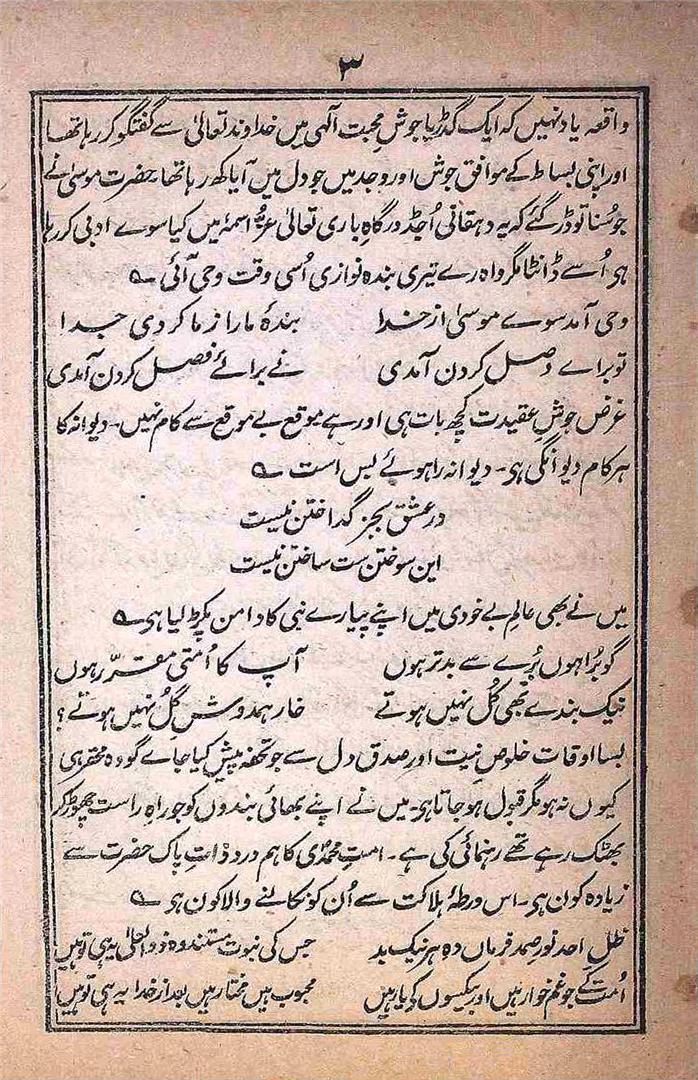 ۳
واقعہ یاد نہیں کہ ایک گڈریا جوش محبت آلٰہی میں خداوند تعالیٰ سے گفتگو کر رہا تھا
اور اپنی بساط کے موافق جوش اور وجد میں جو دل میں آیا کھ رہا تھا حضرت موسیٰ نے
جو سُنا تو ڈر گئے کہ یہ دہقانی اُجڈ درگاہِ باری تعالیٰ عزّ اسمہٗ میں کیا سوے ادبی کر رہا
ہی اُسے ڈانٹا مگر واہ رے تیری بندہ نوازی اُسی وقت وحی آئی ؎
وحی آمد سوے موسیٰ از خدا بندۂ ما را ز ما کردی جدا
تو براے وصل کردن آمدی نے برائے فصل کردن آمدی
غرض جوشِ عقیدت کچھ بات ہی اور ہے موقع بے موقع سے کام نہیں۔ دیوانہ کا
ہر کام دیوانگی ہی۔ دیوانہ را ہوئے بس است ؎
در عشق بجز گداختن نیست
این سوختن ست ساختن نیست
میں نے بھی عالمِ بے خودی میں اپنے پیارے نبی کا دامن پکڑ لیا ہی ؎
گو بُرا ہوں بُرے سے بدتر ہوں آپ کا اُمتی مقرّر ہوں
نیک بندے بھی کُل نہیں ہوتے خار ہمدوشِ گُل نہیں ہوتے؟
بسا اوقات خلوص نیت اور صدق دل سے جو تحفہ پیش کیا جاے گو وہ محقر ہی
کیوں نہ ہو مگر قبول ہو جاتا ہی۔ میں نے اپنے بھائی بندوں کو جو راہِ راست چھوڑ کر
بھٹک رہے تھے رہنمائی کی ہے۔ امتِ محمدؐی کا ہم درد ذاتِ پاک حضرت سے
زیادہ کون ہی۔ اس ورطۂ ہلاکت سے اُن کو نکالنے والا کون ہی ؎
ظل احد نور صمد فرماں دہِ ہر نیک بد جس کی نبوت مستند وہ ذوالعلیٰ یہ ہی تو ہیں
اُمت کے جو غم خوار ہیں اور بیکسوں کے یار ہیں محبوب ہیں مختار ہیں بعد از خدا یہ ہی تو ہیں